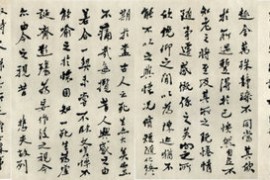 趣舍萬殊靜躁不同當其欣
於所遇暫得於己怏然自足不
知老之將至及其所之既惓情
隨事遷感慨係之矣向之所欣
俛仰之間以為陳迹猶不
能不以之興懷況脩短隨化終
期於盡古人云死生亦大矣豈
不痛哉每攬昔人興感之由
若合一契未嘗不臨文嗟悼不
能喻之於懷固知一死生為虛
誕齊彭殤為妄作後之視今
亦由今之視昔悲夫故列